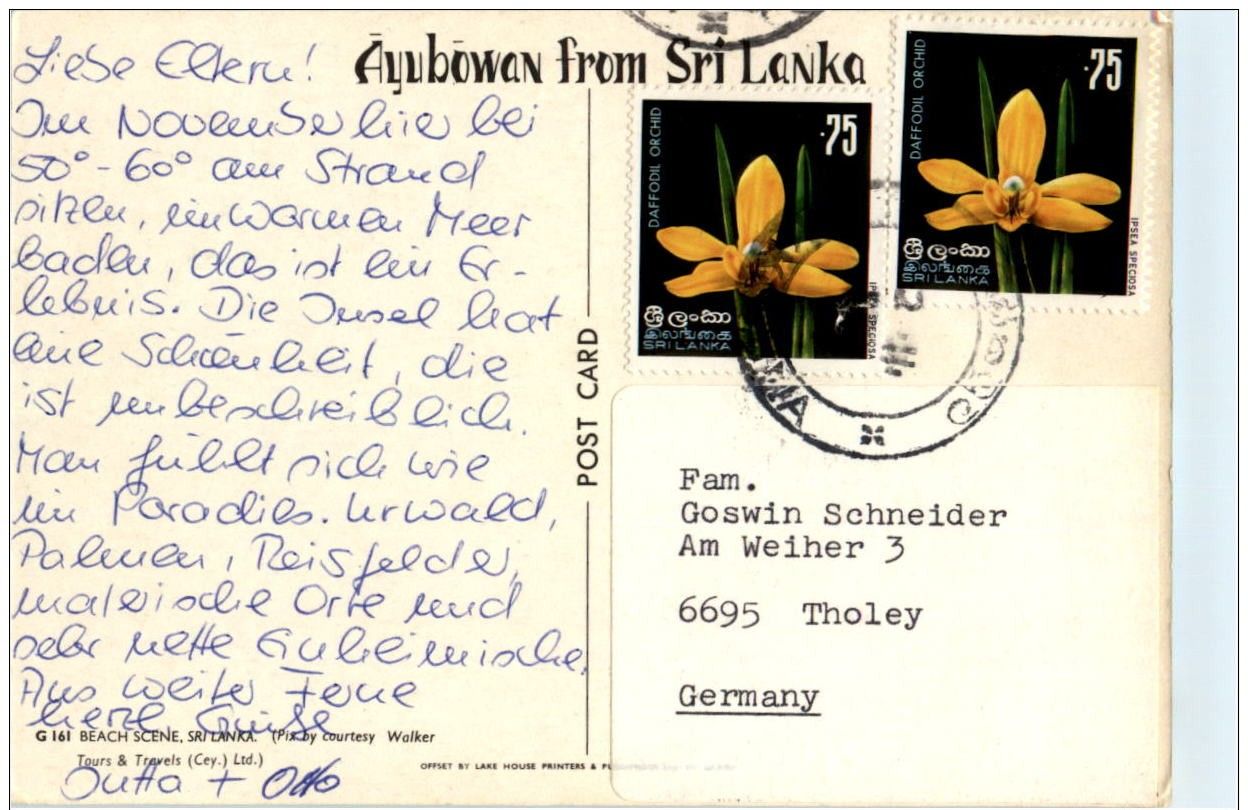 Āyubōwan from Sri Lanka
Liebe Eltern!
Im November hier bei
50° - 60° am Strand
sitzen, im warmen Meer
baden, das ist ein Er-
lebnis. Die Insel hat
eine Schönheit, die
ist unbeschreiblich.
Man fühlt sich wie
im Paradies. Urwald,
Palmen, Reisfelder,
malerische Orte und
sehr nette Einheimische.
Aus weiter Ferne
herzl. Grüße
Jutta + Otto
G 161 BEACH SCENE, SRI LANKA. (Pix by courtesy Walker
Tours & Travels (Cey.) Ltd.)
OFFSET BY LAKE HOUSE PRINTERS &
POST CARD
DAFFODIL ORCHID
.75
ශ්‍රී ලංකා
இலங்கை
SRI LANKA
IPSEA SPECIOSA
DAFFODIL ORCHID
.75
ශ්‍රී ලංකා
இலங்கை
SRI LANKA
IPSEA SPECIOSA
Fam.
Goswin Schneider
Am Weiher 3
6695 Tholey
Germany